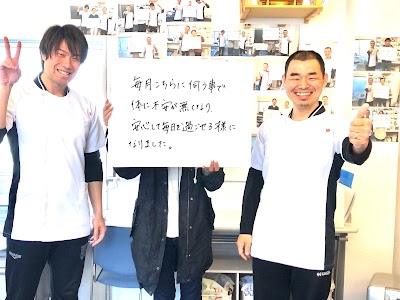 毎月こちらに伺う事で
体に不安が無くなり、
安心して毎日を過ごせる様に
なりました。